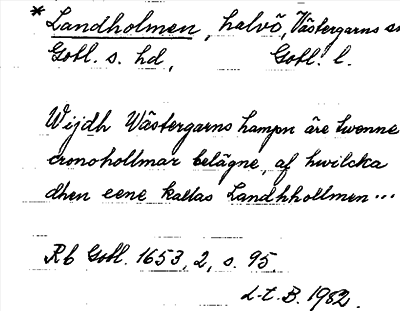 * Landholmen, halvö, Västergarns sn
Gotl. s. hd, Gotl. l.
Wijdh Wästergarns hampn äre twenne
cronohollmar belägne, af hwilcka
dhen eene kallas Landhhollmen...
Rb Gotl. 1653, 2, s. 95.
L-t. B. 1982.